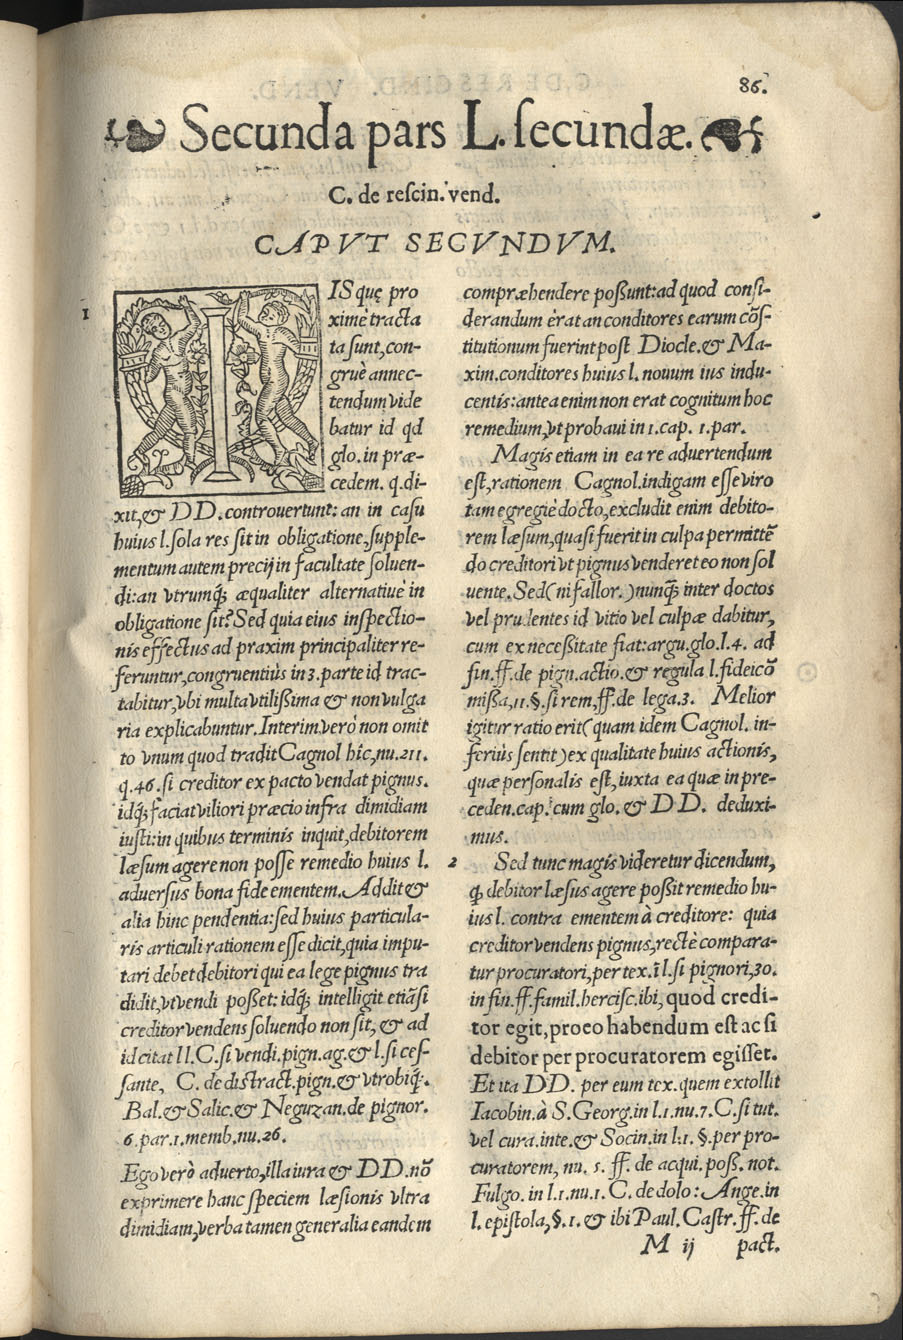 86.
Secunda pars L. ſecundæ.
C. de reſcin. vend.
CAPVT SECVNDVM.
1
IIS quę pro
ximè tracta
ta ſunt, con-
gruè annec-
tendum vide
batur id qd
glo. in præ-
cedem. q. di-
xit, & DD. controuertunt: an in caſu
huius l. ſola res ſit in obligatione, ſupple-
mentum autem precij in facultate ſoluen-
di: an vtrumq́; æqualiter alternatiuè in
obligatione ſit? Sed quia eius inſpectio-
nis effectus ad praxim principaliter re-
feruntur, congruentiùs in 3. parte id trac-
tabitur, vbi multa vtiliſſima & non vulga
ria explicabuntur. Interim verò non omit
to vnum quod tradit Cagnol hîc, nu. 211.
q. 46. ſi creditor ex pacto vendat pignus.
idq́; faciat viliori præcio infra dimidiam
iuſti: in quibus terminis inquit, debitorem
læſum agere non poſſe remedio huius l.
aduerſus bona fide ementem. Addit &
alia hinc pendentia: ſed huius particula-
ris articuli rationem eſſe dicit, quia impu-
tari debet debitori qui ea lege pignus tra
didit, vt vendi poſſet: idq́; intelligit etiāſi
creditor vendens ſoluendo non ſit, & ad
id citat ll. C. ſi vendi. pign. ag. & l. ſi ceſ-
ſante, C. de diſtract. pign. & vtrobiq́;.
Bal. & Salic. & Neguzan. de pignor.
6. par. 1. memb. nu. 26.
Ego verò aduerto, illa iura & DD. nō
exprimere hanc ſpeciem læſionis vltra
dimidiam, verba tamen generalia eandem
compræhendere poſſunt: ad quod conſi-
derandum èrat an conditores earum cōſ-
titutionum fuerint poſt Diocle. & Ma-
xim. conditores huius l. nouum ius indu-
centis: antea enim non erat cognitum hoc
remedium, vt probaui in 1. cap. 1. par.
Magis etiam in ea re aduertendum
eſt, rationem Cagnol. indigam eſſe viro
tam egregiè docto, excludit enim debito-
rem læſum, quaſi fuerit in culpa permittē
do creditori vt pignus venderet eo non ſol
uente. Sed (ni fallor.) nunq̃; inter doctos
vel prudentes id vitio vel culpæ dabitur,
cum ex neceſſitate fiat: argu. glo. l. 4. ad
fin. ff. de pign. actio. & regula l. fideicō
miſſa, 11. §. ſi rem, ff. de lega. 3. Melior
igitur ratio erit (quam idem Cagnol. in-
feriùs ſentit) ex qualitate huius actionis,
quæ perſonalis eſt, iuxta ea quæ in pre-
ceden. cap. cum glo. & DD. deduxi-
mus.
2 Sed tunc magis videretur dicendum,
q̃ debitor læſus agere poſſit remedio hu-
ius l. contra ementem à creditore: quia
creditor vendens pignus, rectè compara-
tur procuratori, per tex. ī l. ſi pignori, 30.
in fin. ff. famil. herciſc. ibi, quod credi-
tor egit, pro eo habendum eſt ac ſi
debitor per procuratorem egiſſet.
Et ita DD. per eum tex. quem extollit
Iacobin. à S. Georg. in l. 1. nu. 7. C. ſi tut.
vel cura. inte. & Socin. in l. 1. §. per pro-
curatorem, nu. 5. ff. de acqui. poſſ. not.
Fulgo. in l. 1. nu. 1. C. de dolo: Ange. in
l. epiſtola, §. 1. & ibi Paul. Caſtr. ff. de
M ij pact.